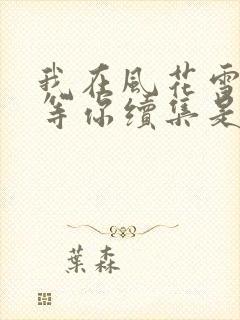 我在風花雪
等你續集是
葉森